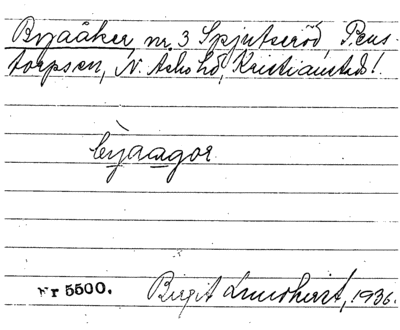 Byaåker, nr. 3 Spjutseröd, Perstorps sn, N. Åsbo hd, Kristianstads l.
byaagor
Nr 5500. Birgit 1936.